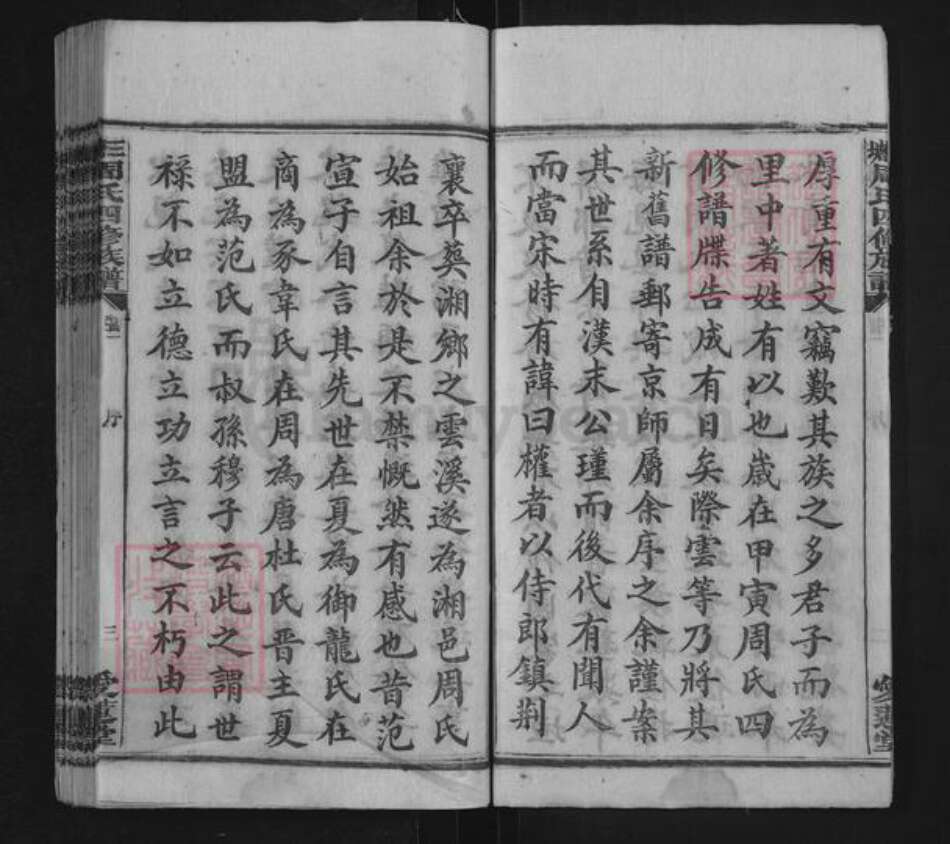 厚重有文竊歎其族之多君子而為
里中著姓有以也歲在甲寅周氏四
修譜牒告成有日矣際雲等乃將其
新舊譜郵寄京師屬余序之余謹案
其世系自漢末公瑾而後代有聞人
而當宋時有諱曰權者以侍郎鎮荆
襄卒葬湘鄉之雲溪遂為湘邑周氏
始祖余於是不禁慨然有感也昔范
宣子自言其先世在夏為御龍氏在
商為豕韋氏在周為唐杜氏晉主夏
盟為范氏而叔孫穆子云此之謂世
祿不如立德立功立言之不朽由此
周氏四修族譜
序
三
愛蓮堂